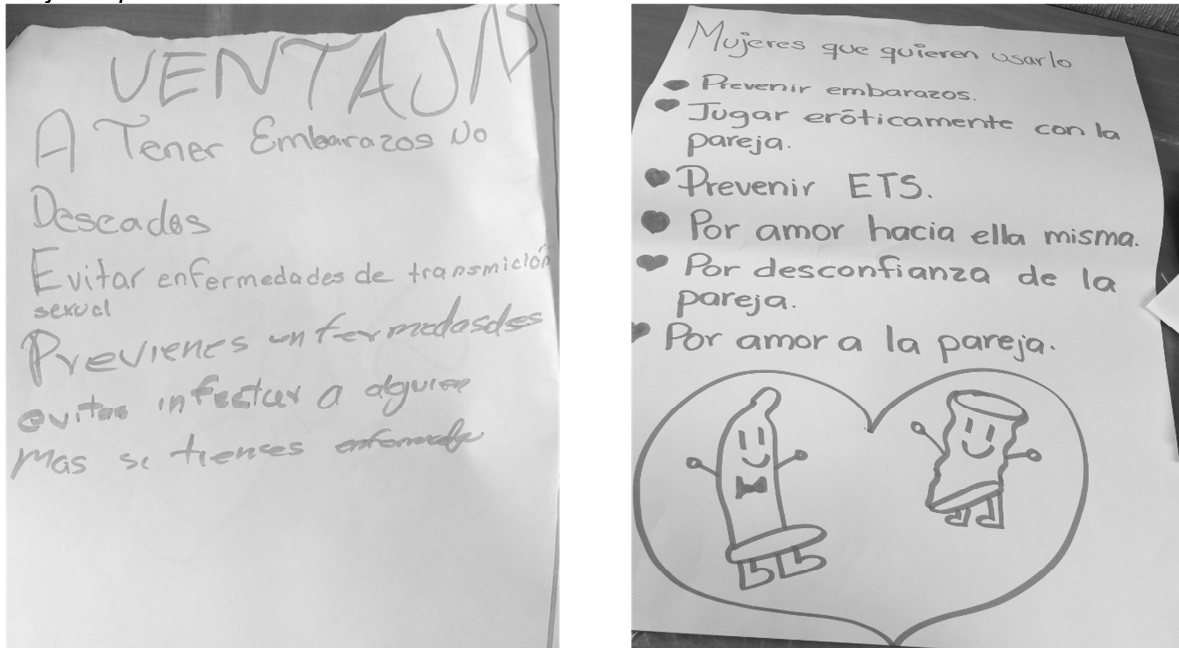 VENTAJAS
A Tener Embarazos No
Deseados
Evitar enfermedades de transmición
sexual
Previenes enfermedasdes
evitas infectar a alguien
mas si tienes
Mujeres que quieren usarlo
Prevenir embarazos.
Jugar eróticamente con la
pareja.
Prevenir ETS.
Por amor hacia ella misma.
Por desconfianza de la
pareja.
Por amor a la pareja.